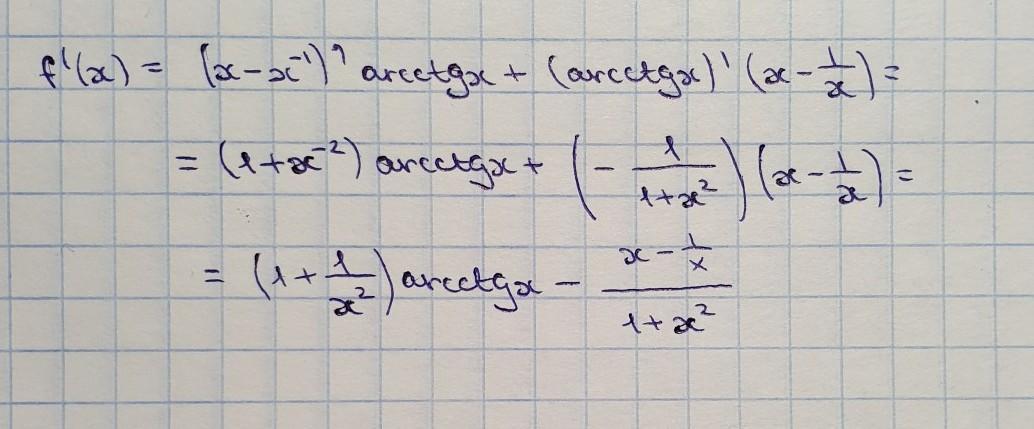 f'(x) = (x-x⁻¹)' arcctgx + (arcctgx)' (x - 1/x) =
= (1+x⁻²) arcctgx + (- 1/(1+x²)) (x - 1/x) =
= (1 + 1/x²) arcctgx - (x - 1/x)/(1+x²)